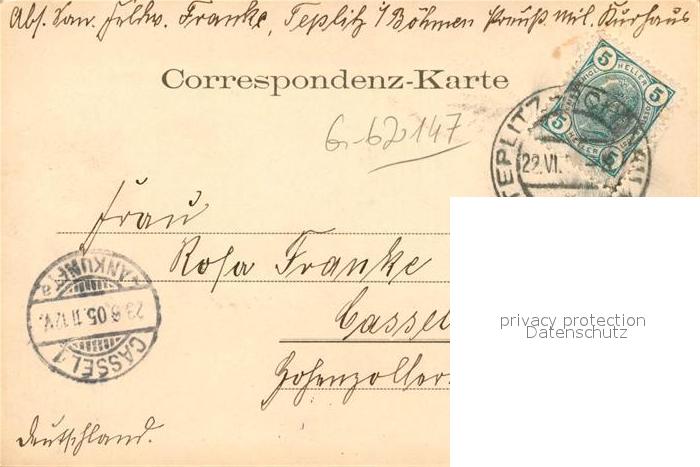 Abs. San. Feldw. Franke, Teplitz i/Böhmen Preuß. mil. Kurhaus
Correspondenz-Karte
5 HELLER 5
5 HELLER 5
TEPLITZ-
22.VI.
G. 62147
Frau
Rosa Franke
Cassel
Hohenzoller
ANKUNFT
a
23.6.05.11-12V.
CASSEL 1
Deutschland.
privacy protection
Datenschutz